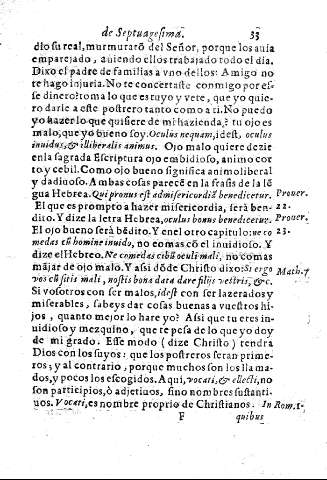 de Septuagesima. 33
dio su real, murmurarō del Señor, porque los auia
emparejado, auiendo ellos trabajado todo el dia.
Dixo el padre de familias a vno dellos: Amigo no
te hago injuria. No te concertaste conmigo por es-
se dinero? toma lo que es tuyo y vete, que yo quie-
ro darle a este postrero tanto como a ti. No puedo
yo hazer lo que quisiere de mi hazienda, ? tu ojo es
malo, que yo bueno soy. Oculus nequam, idest, oculus
inuidus, & illiberalis animus. Ojo malo quiere dezir
en la sagrada Escriptura ojo embidioso, animo cor
to y cebil. Como ojo bueno significa animo liberal
y dadiuoso. Ambas cosas parecē en la frasis de la lē
gua Hebrea. Qui pronus est ad misericordiā benedicetur. Prouer.
El que es prompto a hazer misericordia, serà ben- 22.
dito. Y dize la letra Hebrea, oculus bonus benedicetur. Prouer.
El ojo bueno serà bēdito. Y en el otro capitulo: ne co 23.
medas cū homine inuido, no comas cō el inuidioso. Y
dize el Hebreo. Ne comedas cibū oculi mali, no comas
māJar de ojo malo. Y assi dōde Christo dixo: Si ergo Math. 7
vos cū sitis mali, nostis bona data dare filijs vestris, &c.
Si vosotros con ser malos, idest con ser lazerados y
miserables, sabeys dar cosas buenas a vuestros hi-
jos, quanto mejor lo hare yo? Assi que tu eres in-
uidioso y mezquino, que te pesa de lo que yo doy
de mi grado. Esse modo (dize Christo) tendra
Dios con los suyos: que los postreros seran prime-
ros; y al contrario, porque muchos son los lla ma-
dos, y pocos los escogidos. Aqui, vocati, & electi, no
son participios, ò adjetiuos, sino nombres sustanti-
uos. Vocati, es nombre proprio de Christianos. In Rom. 1.
F quibus